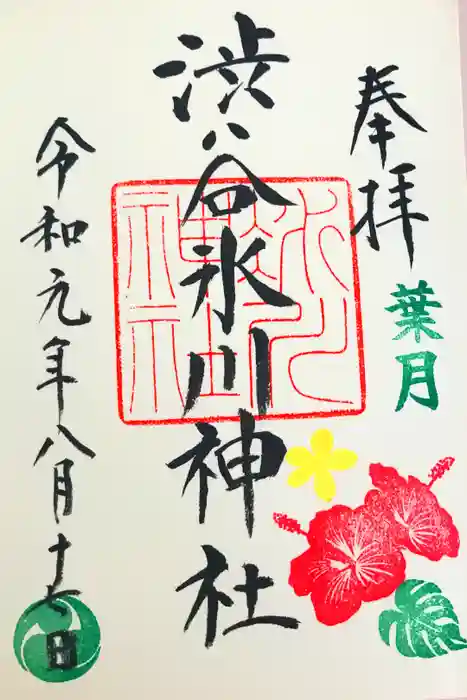 奉拝
葉月
渋谷氷川神社
氷川神社
令和元年八月十七日